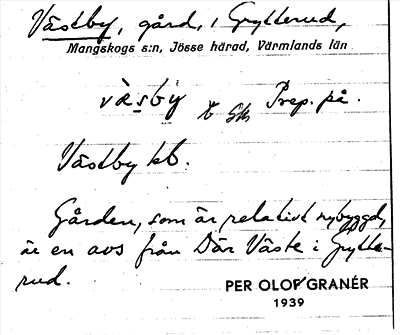 Västby, gård, i Grytterud,
Mangskogs s:n, Jösse härad, Värmlands län
väsby Prep. på.
Västby kb.
Gården, som är relativt nybyggd,
är en avs från Där Väste i Grytte-
rud.
PER OLOF GRANÉR
1939